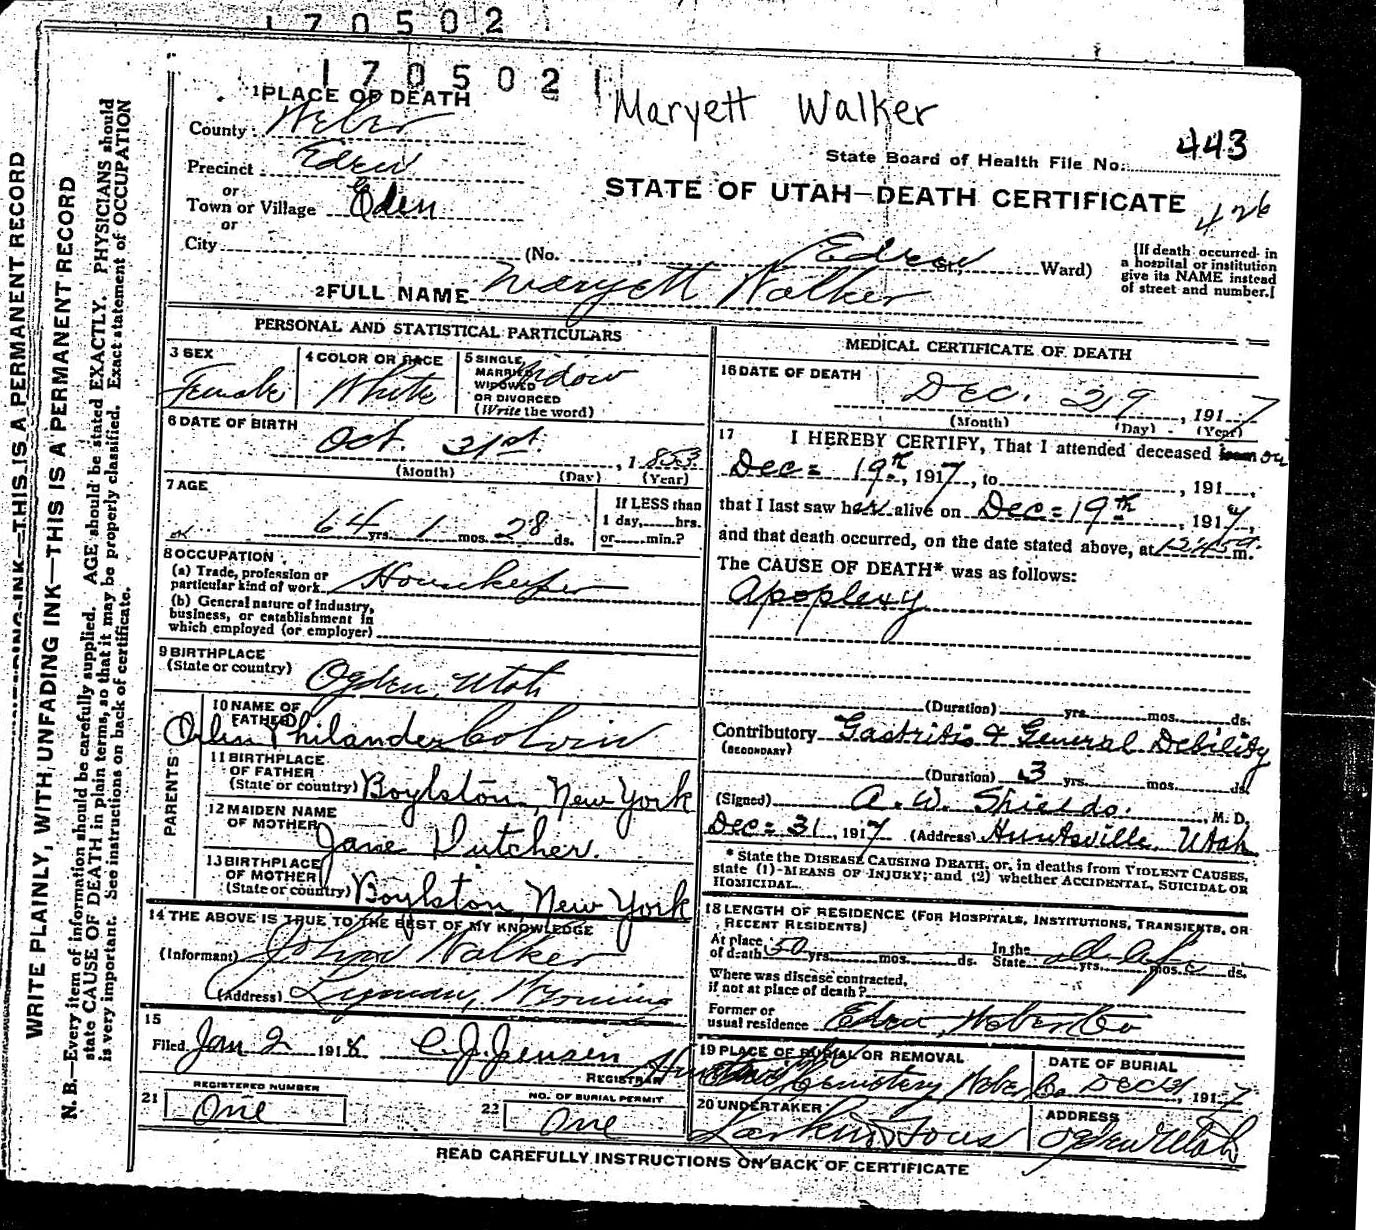 170502
1705021
Maryett Walker
1 PLACE OF DEATH
County: Weber
State Board of Health File No. 443
Precinct Eden
or
STATE OF UTAH—DEATH CERTIFICATE
426
Town or Village Eden
or
City (No. Eden St., Ward)
[If death occurred in
a hospital or institution
give its NAME instead
of street and number.]
2 FULL NAME Maryett Walker
PERSONAL AND STATISTICAL PARTICULARS
3 SEX
Female
4 COLOR OR RACE
White
5 SINGLE,
MARRIED
WIDOWED
OR DIVORCED
(Write the word)
Widow
6 DATE OF BIRTH
Oct. 31st, 1853
(Month) (Day) (Year)
7 AGE
64 yrs. 1 mos. 28 ds.
If LESS than
1 day, hrs.
or min.?
8 OCCUPATION
(a) Trade, profession or
particular kind of work Housekeeper
(b) General nature of industry,
business, or establishment in
which employed (or employer)
9 BIRTHPLACE
(State or country) Ogden, Utah
PARENTS
10 NAME OF
FATHER
Orlin Philander Colvin
11 BIRTHPLACE
OF FATHER
(State or country) Boylston, New York
12 MAIDEN NAME
OF MOTHER
Jane Dutcher.
13 BIRTHPLACE
OF MOTHER
(State or country) Boylston, New York
14 THE ABOVE IS TRUE TO THE BEST OF MY KNOWLEDGE
(Informant) Walker
(Address) Lyman, Wyoming
15
Filed Jan 2 1918 C. J. Jensen
REGISTRAR
REGISTERED NUMBER
21 One
NO. OF BURIAL PERMIT
22 One
MEDICAL CERTIFICATE OF DEATH
16 DATE OF DEATH
Dec. 29, 1917
(Month) (Day) (Year)
17 I HEREBY CERTIFY, That I attended deceased from on
Dec= 19th, 1917, to , 191
that I last saw her alive on Dec=19th, 1917,
and that death occurred, on the date stated above, at m.
The CAUSE OF DEATH* was as follows:
Apoplexy
(Duration) yrs. mos. ds.
Contributory Gastritis & General Debility
(SECONDARY)
(Duration) 3 yrs. mos. ds.
(Signed) A. W. Shields. M. D.
Dec= 31, 1917 (Address) Huntsville, Utah
* State the DISEASE CAUSING DEATH, or, in deaths from VIOLENT CAUSES,
state (1) MEANS OF INJURY; and (2) whether ACCIDENTAL, SUICIDAL OR
HOMICIDAL.
18 LENGTH OF RESIDENCE (FOR HOSPITALS, INSTITUTIONS, TRANSIENTS, OR
RECENT RESIDENTS)
At place
of death 50 yrs. mos. ds.
In the
State all life yrs. mos. ds.
Where was disease contracted,
if not at place of death?
Former or
usual residence Eden, Weber Co
19 PLACE OF BURIAL OR REMOVAL
Cemetery Weber Co.
DATE OF BURIAL
Dec 31, 1917
20 UNDERTAKER
Larkin & Sons
ADDRESS
Ogden Utah
READ CAREFULLY INSTRUCTIONS ON BACK OF CERTIFICATE
WRITE PLAINLY, WITH UNFADING INK—THIS IS A PERMANENT RECORD
N. B.—Every item of information should be carefully supplied. AGE should be stated EXACTLY. PHYSICIANS should
state CAUSE OF DEATH in plain terms, so that it may be properly classified. Exact statement of OCCUPATION
is very important. See instructions on back of certificate.